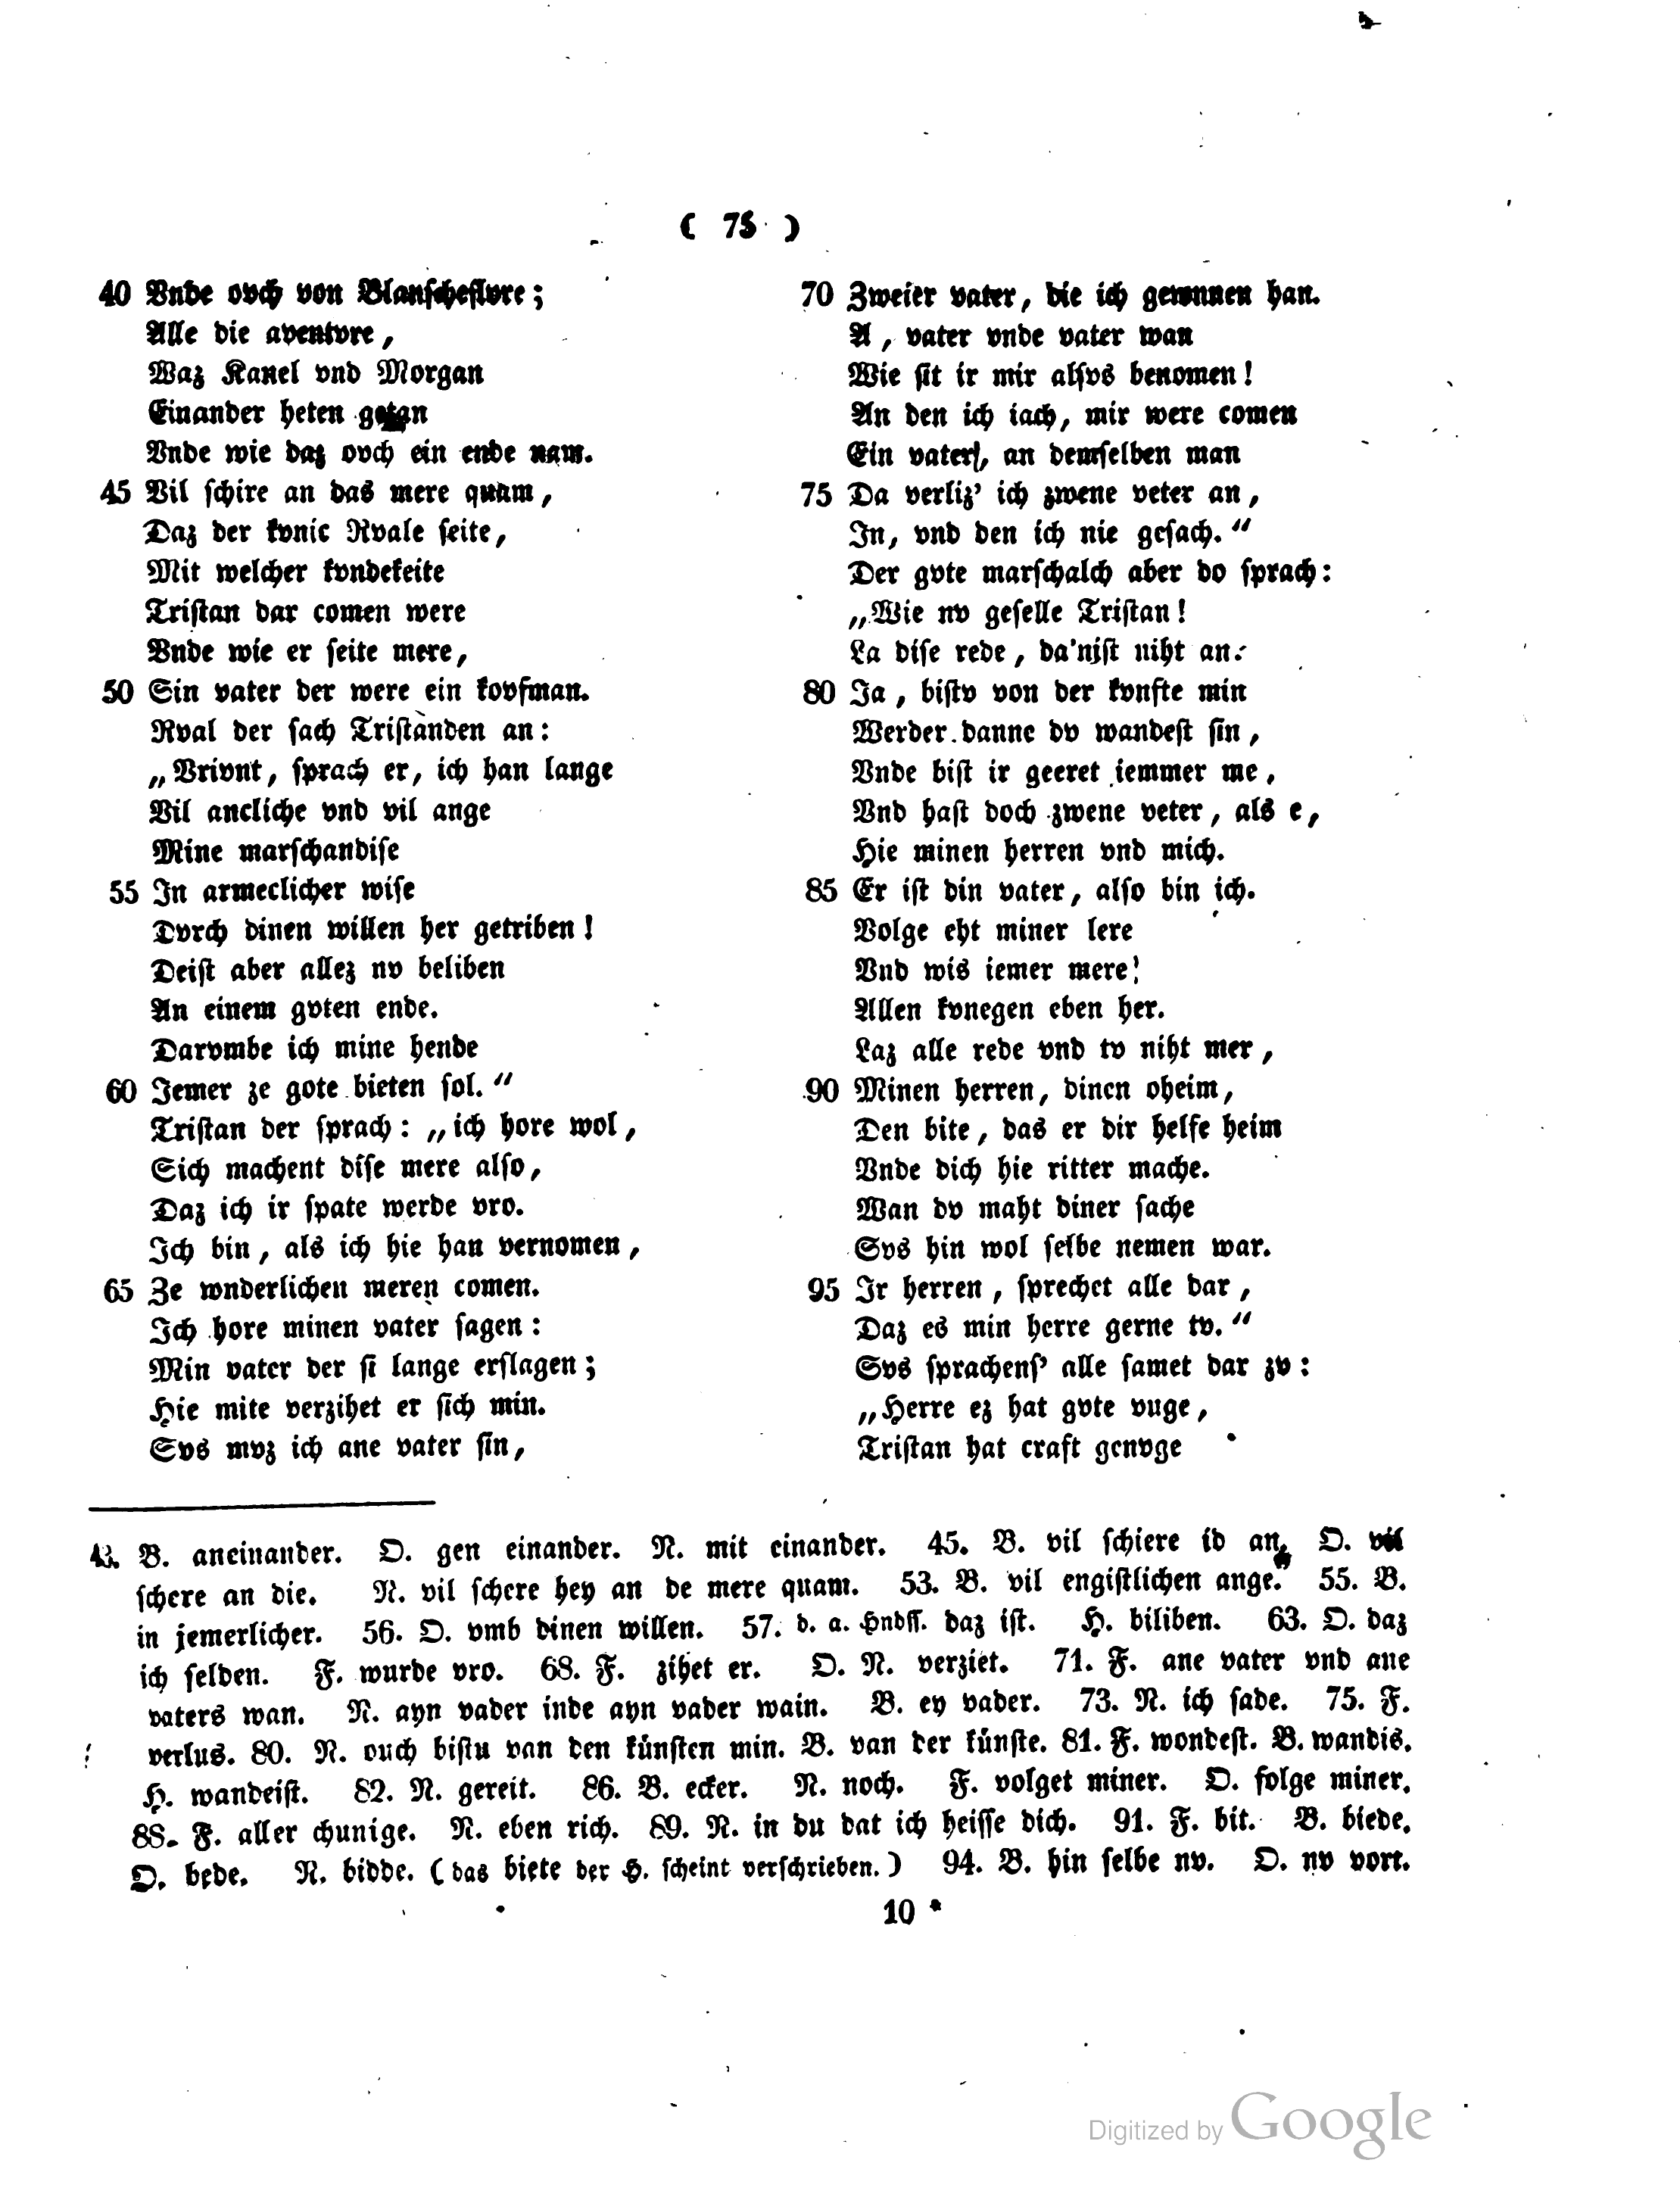 ( 75 )
40 Vnde ovch von Blanscheflvre;
Alle die aventvre,
Waz Kanel vnd Morgan
Einander heten getan
Vnde wie daz ovch ein ende nam.
45 Vil schire an das mere quam,
Daz der kvnic Rvale seite,
Mit welcher kvndekeite
Tristan dar comen were
Vnde wie er seite mere,
50 Sin vater der were ein kovfman.
Rval der sach Tristanden an:
„Vrivnt, sprach er, ich han lange
Vil ancliche vnd vil ange
Mine marschandise
55 In armeclicher wise
Dvrch dinen willen her getriben!
Deist aber allez nv beliben
An einem gvten ende.
Darvmbe ich mine hende
60 Jemer ze gote bieten sol.“
Tristan der sprach: „ich hore wol,
Sich machent dise mere also,
Daz ich ir spate werde vro.
Ich bin, als ich hie han vernomen,
65 Ze wnderlichen meren comen.
Ich hore minen vater sagen:
Min vater der si lange erslagen;
Hie mite verzihet er sich min.
Svs mvz ich ane vater sin,
70 Zweier vater, die ich gewnnen han.
A, vater vnde vater wan
Wie sit ir mir alsvs benomen!
An den ich iach, mir were comen
Ein vater, an demselben man
75 Da verliz' ich zwene veter an,
In, vnd den ich nie gesach.“
Der gvte marschalch aber do sprach:
„Wie nv geselle Tristan!
La dise rede, da'nist niht an:
80 Ja, bistv von der kvnfte min
Werder danne dv wandest sin,
Vnde bist ir geeret iemmer me,
Vnd hast doch zwene veter, als e,
Hie minen herren vnd mich.
85 Er ist din vater, also bin ich.
Volge eht miner lere
Vnd wis iemer mere!
Allen kvnegen eben her.
Laz alle rede vnd tv niht mer,
90 Minen herren, dinen oheim,
Den bite, das er dir helfe heim
Vnde dich hie ritter mache.
Wan dv maht diner sache
Svs hin wol selbe nemen war.
95 Ir herren, sprechet alle dar,
Daz es min herre gerne tv.“
Svs sprachens' alle samet dar zv:
„Herre ez hat gvte vuge,
Tristan hat craft genvge
43. B. aneinander. O. gen einander. N. mit einander. 45. B. vil schiere id an. O. vil
schere an die. N. vil schere hey an de mere quam. 53. B. vil engistlichen ange. 55. B.
in jemerlicher. 56. O. vmb dinen willen. 57. d. a. Hndss. daz ist. H. biliben. 63. O. daz
ich selden. F. wurde vro. 68. F. zihet er. O. N. verziet. 71. F. ane vater vnd ane
vaters wan. N. ayn vader inde ayn vader wain. B. ey vader. 73. N. ich sade. 75. F.
verlus. 80. N. ouch bistu van den künsten min. B. van der künste. 81. F. wondest. B. wandis.
H. wandeist. 82. N. gereit. 86. B. ecker. N. noch. F. volget miner. O. folge miner.
88. F. aller chunige. N. eben rich. 89. N. in du dat ich heisse dich. 91. F. bit. B. biede.
O. bede. N. bidde. (das biete der H. scheint verschrieben.) 94. B. hin selbe nv. O. nv vort.
10 *
Digitized by Google